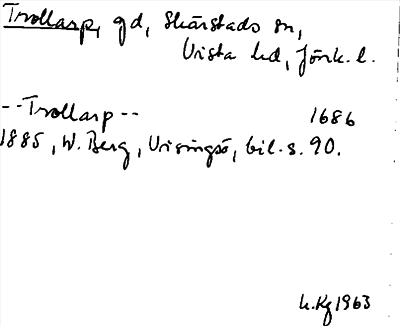 Trollarp, gd, Skärstads sn,
Vista hd, Jönk. l.
--Trollarp-- 1686
1885, W. Berg, Visingsö, bil. s. 90.
L.Kg 1963